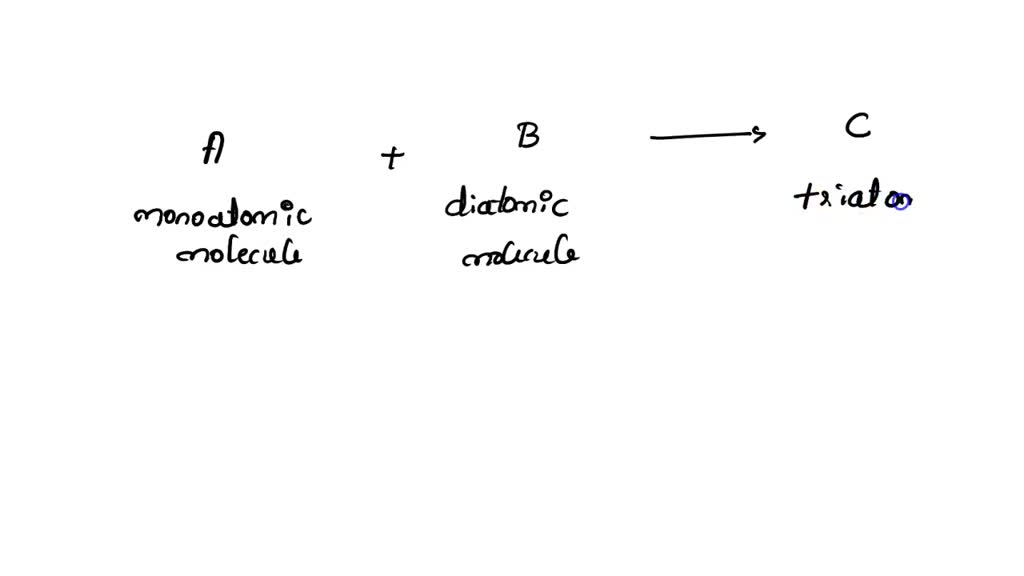 A + B → C
monoatomic diatomic triatom
molecule molecule